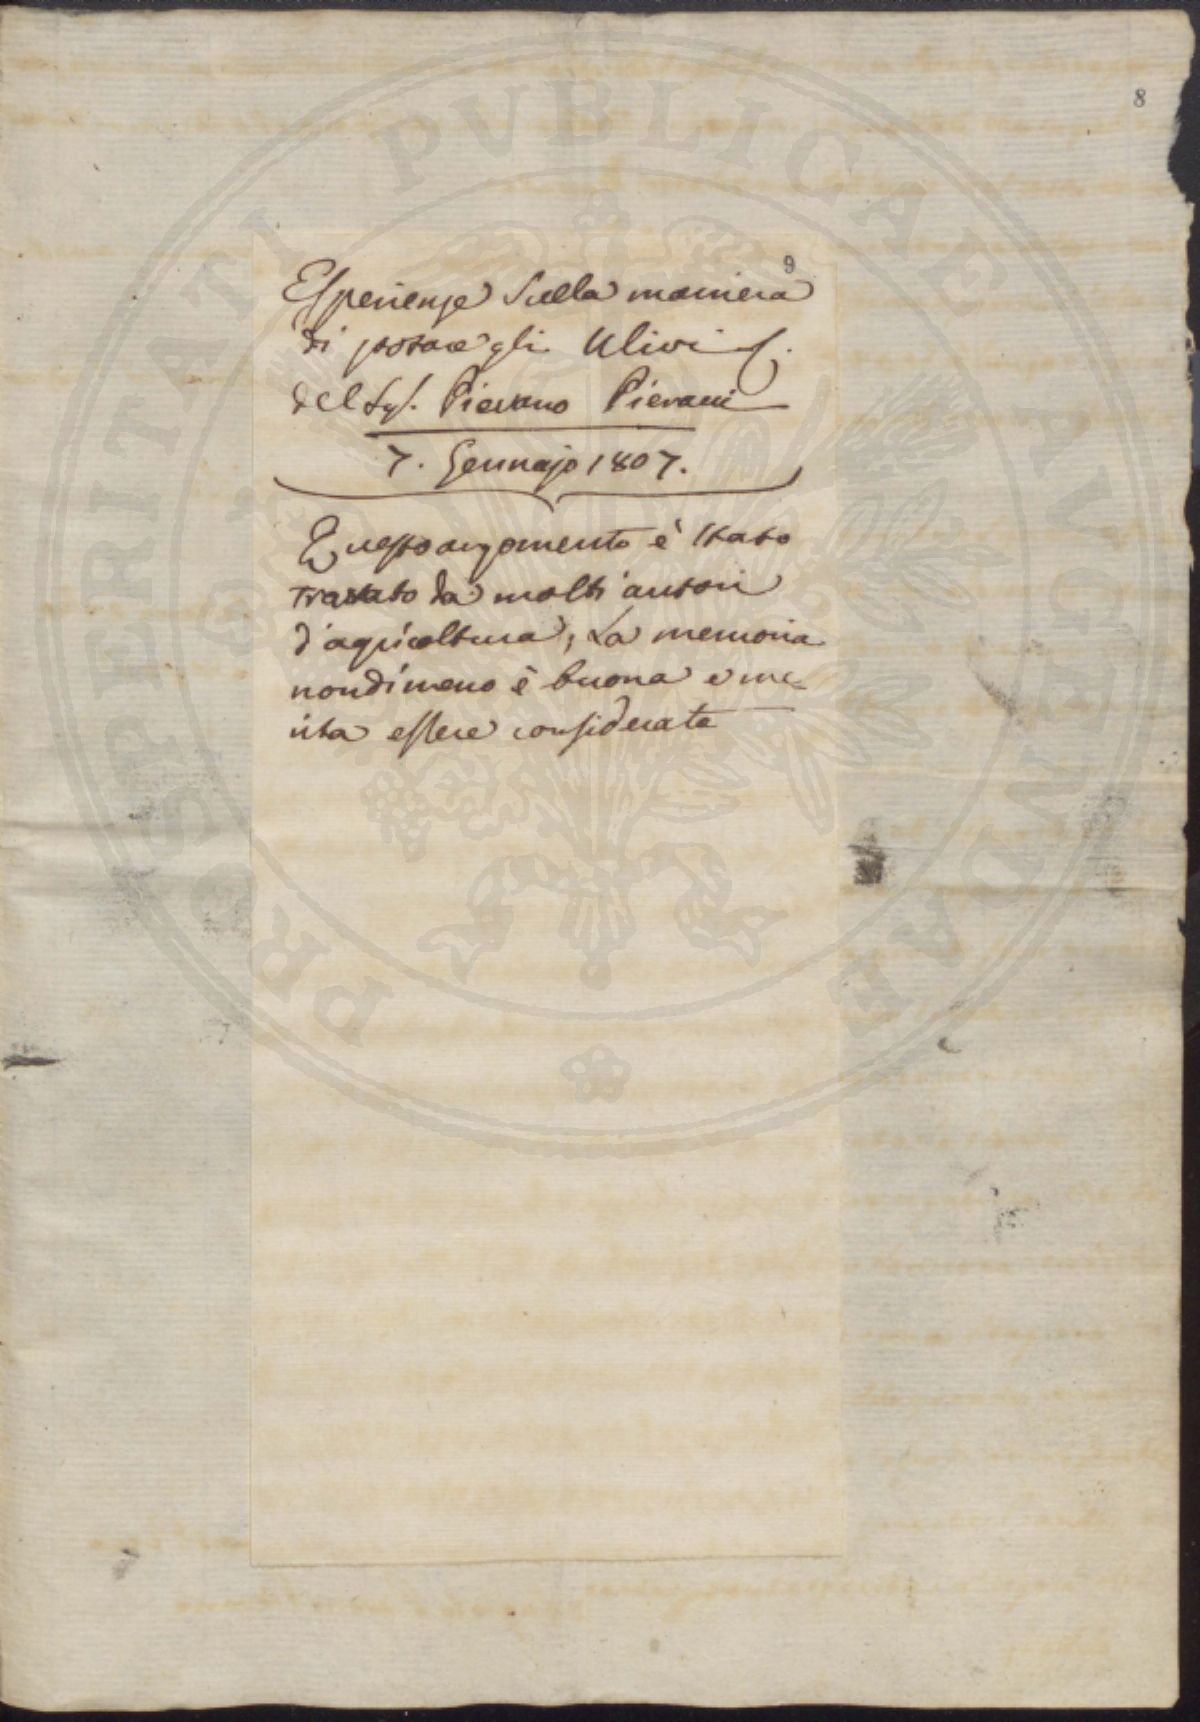 8
9
Esperienze Sulla maniera
di potare gli Ulivi
del Sig. Pievano Pieracci
7. Gennajo 1807.
Questo argomento è stato
trattato da molti autori
d'agricoltura, La memoria
nondimeno è buona e me-
rita essere considerata
PROSPERITATI PVBLICAE AVGENDAE